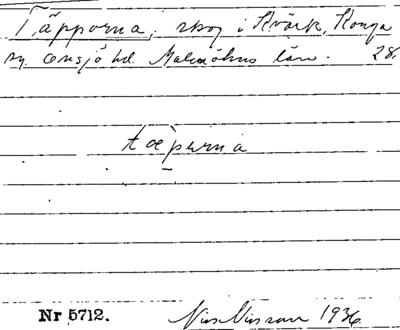 Täpporna, skog i Stvärk, Konga
sn, Onsjö hd. Malmöhus län. 28.
tæpurna
Nr 5712. Nils Nilsson 1936